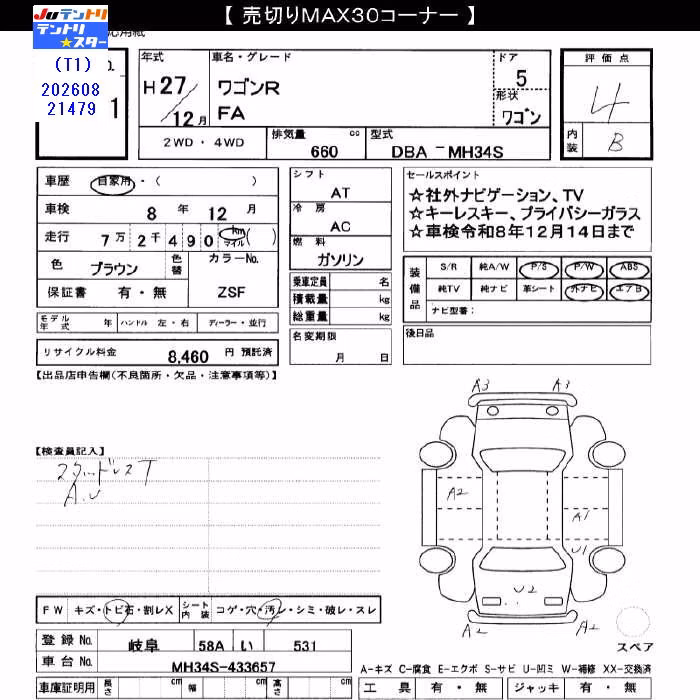 【 売切りMAX30コーナー 】
Juテントリ
テントリ
☆スター
応用紙
(T1)
202608
21479
1
年式 車名・グレード ドア 評価点
H 27/12月 ワゴンR FA 5 4
形状 ワゴン 内装 B
2WD・4WD 排気量 660 cc 型式 DBA - MH34S
車歴 自家用・( )
車検 8年 12月
走行 7万2千490 km マイル ( )
色 ブラウン 色替 カラーNo. ZSF
保証書 有・無
モデル年式 年 ハンドル 左・右 ディーラー・並行
リサイクル料金 8,460 円 預託済
シフト AT
冷房 AC
燃料 ガソリン
乗車定員 名
積載量 kg
総重量 kg
名変期限 月 日
セールスポイント
☆社外ナビゲーション、TV
☆キーレスキー、プライバシーガラス
☆車検令和8年12月14日まで
装備品 S/R 純A/W P/S P/W ABS
純TV 純ナビ 革シート 外ナビ エアB
ナビ型番:
後日品
【出品店申告欄(不良箇所・欠品・注意事項等)】
【検査員記入】
スタッドレスT
A.U
A3 A3
A2
A1
U1
U2
A2 A2
スペア
FW キズ・トビ石・割レX シート内装 コゲ・穴・汚レ・シミ・破レ・スレ
登録No. 岐阜 58A い 531
車台No. MH34S-433657
車庫証明用 長さ cm 幅 cm 高さ cm
A-キズ C-腐食 E-エクボ S-サビ U-凹ミ W-補修 XX-交換済
工具 有・無 ジャッキ 有・無